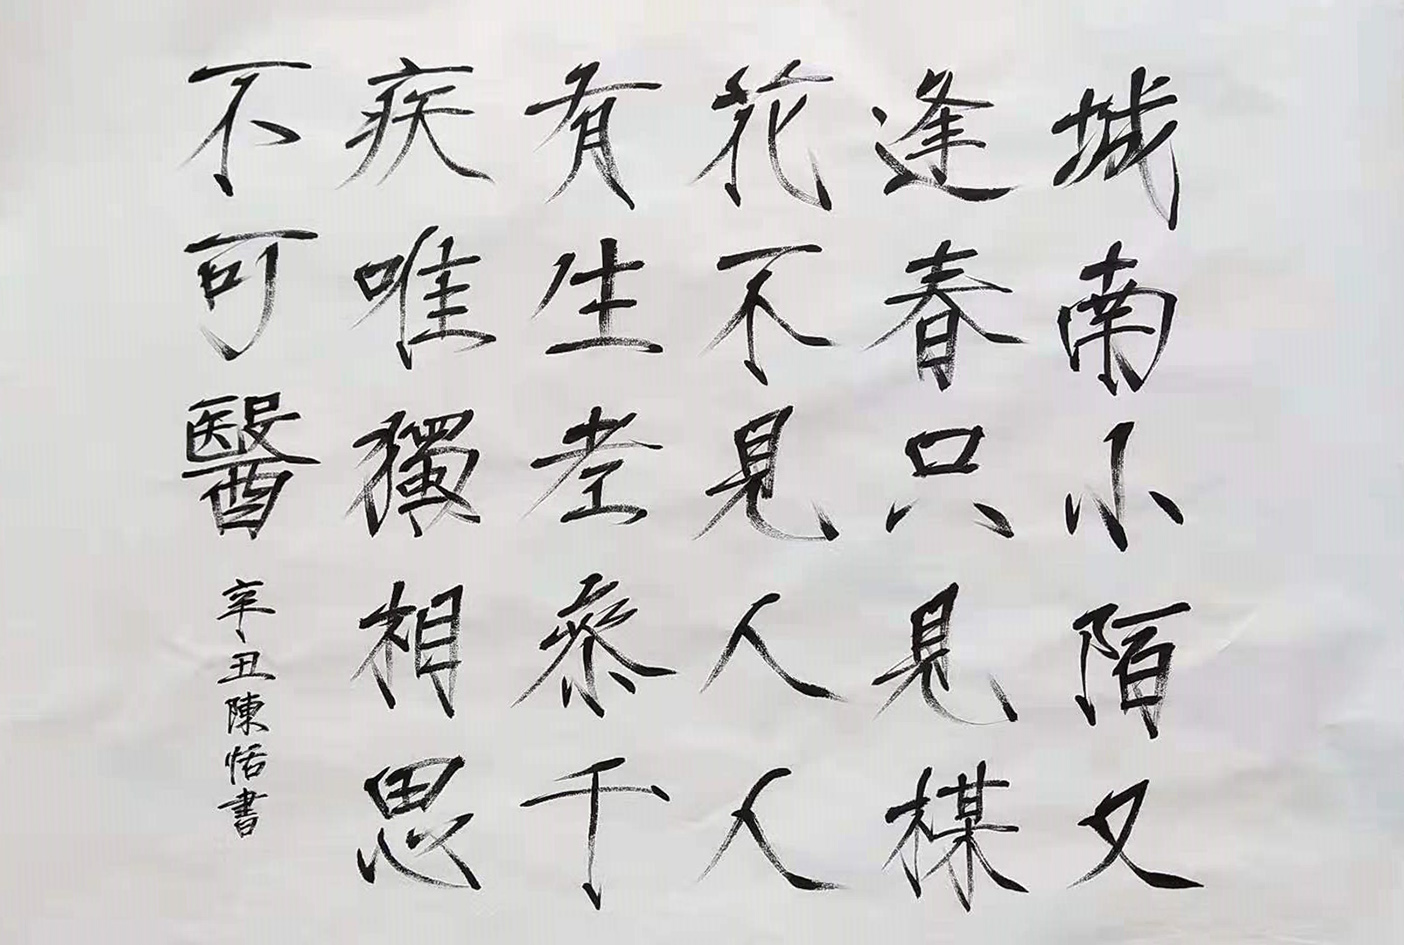 城南小陌又
逢春只見楳
花不見人人
有生老參千
疾唯獨相思
不可醫
辛丑陳恬書